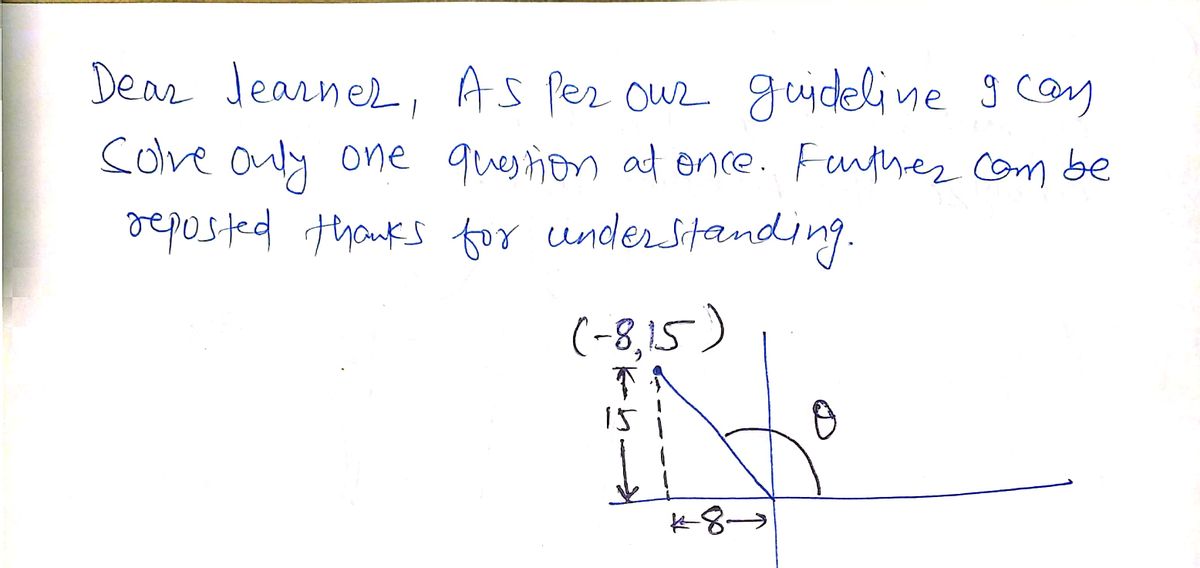 Dear learner, As per our guideline I can
Solve only one question at once. Further can be
reposted thanks for understanding.
(-8,15)
15
θ
8